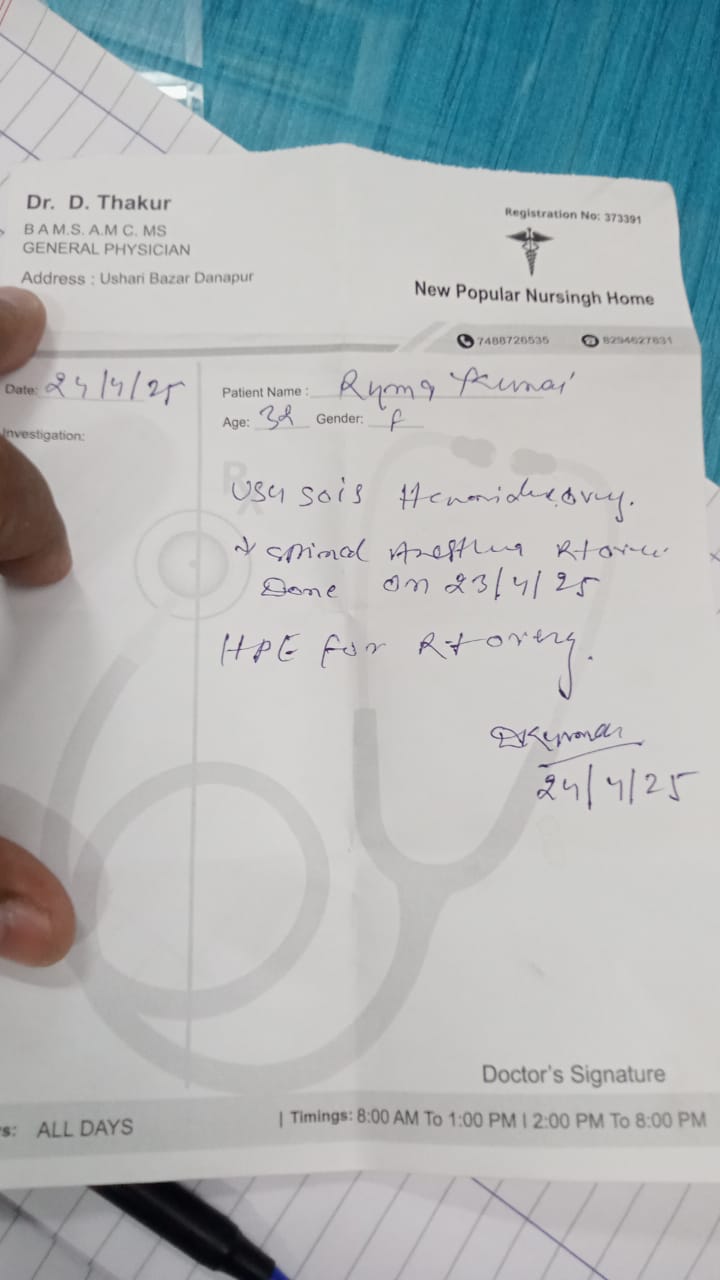 Dr. D. Thakur
B A M.S. A.M C. MS
GENERAL PHYSICIAN
Address : Ushari Bazar Danapur
Registration No: 373391
New Popular Nursingh Home
7488726535 8294627631
Date: 24/4/25
Patient Name : Kumai
Age: 32 Gender: f
Investigation:
Rx
USG sois
spinal
Done on 23/4/25
HPE for Rt overy.
24/4/25
Doctor's Signature
s: ALL DAYS
| Timings: 8:00 AM To 1:00 PM I 2:00 PM To 8:00 PM